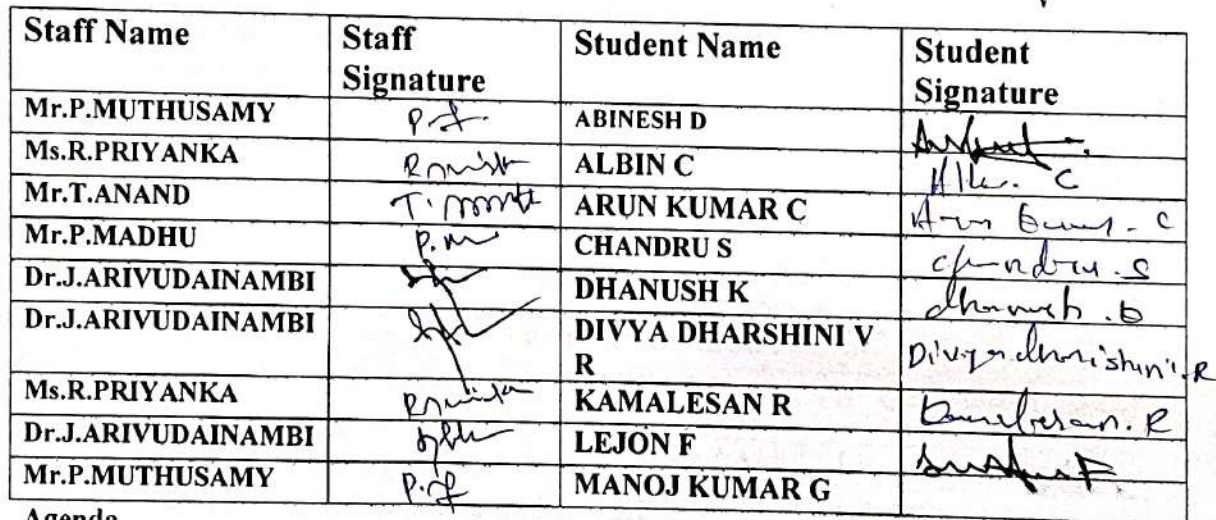 Staff Name Staff Signature Student Name Student Signature
Mr.P.MUTHUSAMY ABINESH D
Ms.R.PRIYANKA ALBIN C
Mr.T.ANAND ARUN KUMAR C Arun Kumar. C
Mr.P.MADHU P.M CHANDRU S chandru.S
Dr.J.ARIVUDAINAMBI DHANUSH K
Dr.J.ARIVUDAINAMBI DIVYA DHARSHINI V R Divya dharishini.R
Ms.R.PRIYANKA KAMALESAN R Kamalesan.R
Dr.J.ARIVUDAINAMBI LEJON F
Mr.P.MUTHUSAMY MANOJ KUMAR G
Agenda